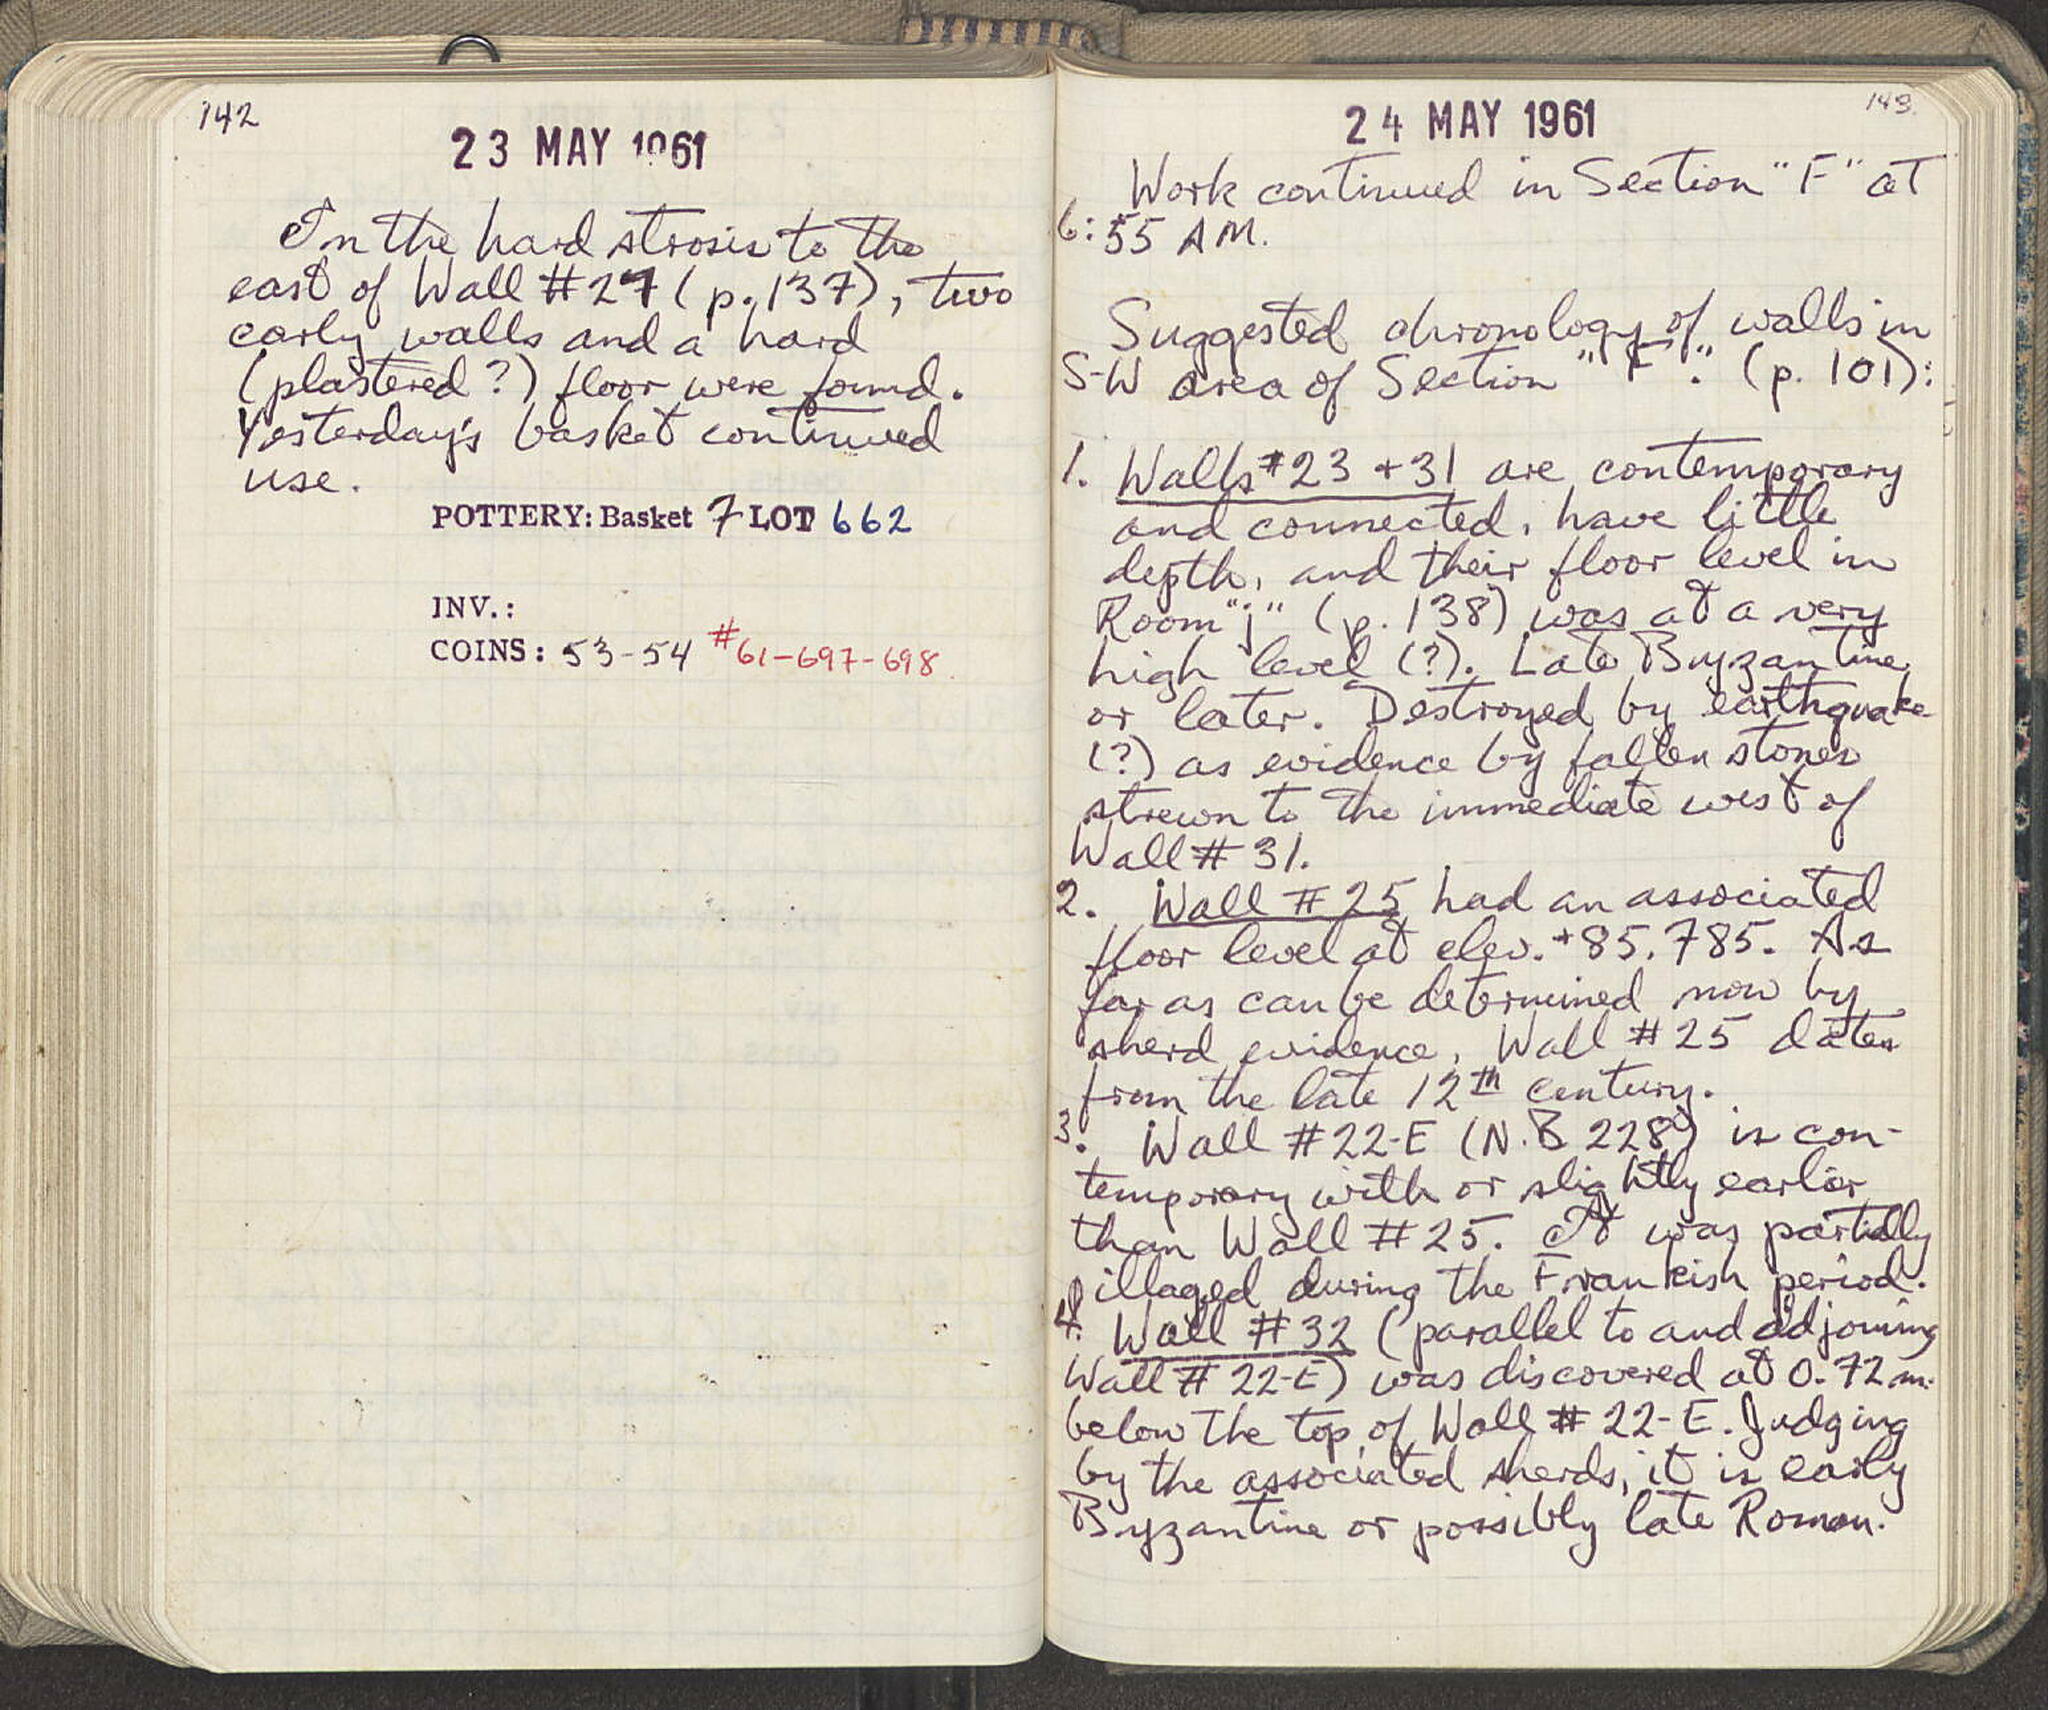 142
23 MAY 1961
In the hard strosis to the
east of Wall #27 (p. 137), two
early walls and a hard
(plastered?) floor were found.
Yesterday's basket continued
use.
POTTERY: Basket 7 LOT 662
INV.:
COINS: 53-54 #61-697-698
143
24 MAY 1961
Work continued in Section "F" at
6:55 AM.
Suggested chronology of walls in
S-W area of Section "F". (p. 101):
1. Walls #23 + 31 are contemporary
and connected, have little
depth, and their floor level in
Room "j" (p. 138) was at a very
high level (?). Late Byzantine
or later. Destroyed by earthquake
(?) as evidence by fallen stones
strewn to the immediate west of
Wall # 31.
2. Wall # 25 had an associated
floor level at elev. +85.785. As
far as can be determined now by
sherd evidence, Wall # 25 dates
from the late 12th century.
3. Wall #22-E (N.B 228) is con-
temporary with or slightly earlier
than Wall # 25. It was partially
pillaged during the Frankish period.
4. Wall # 32 (parallel to and adjoining
Wall # 22-E) was discovered at 0.72 m.
below the top of Wall # 22-E. Judging
by the associated sherds, it is early
Byzantine or possibly late Roman.